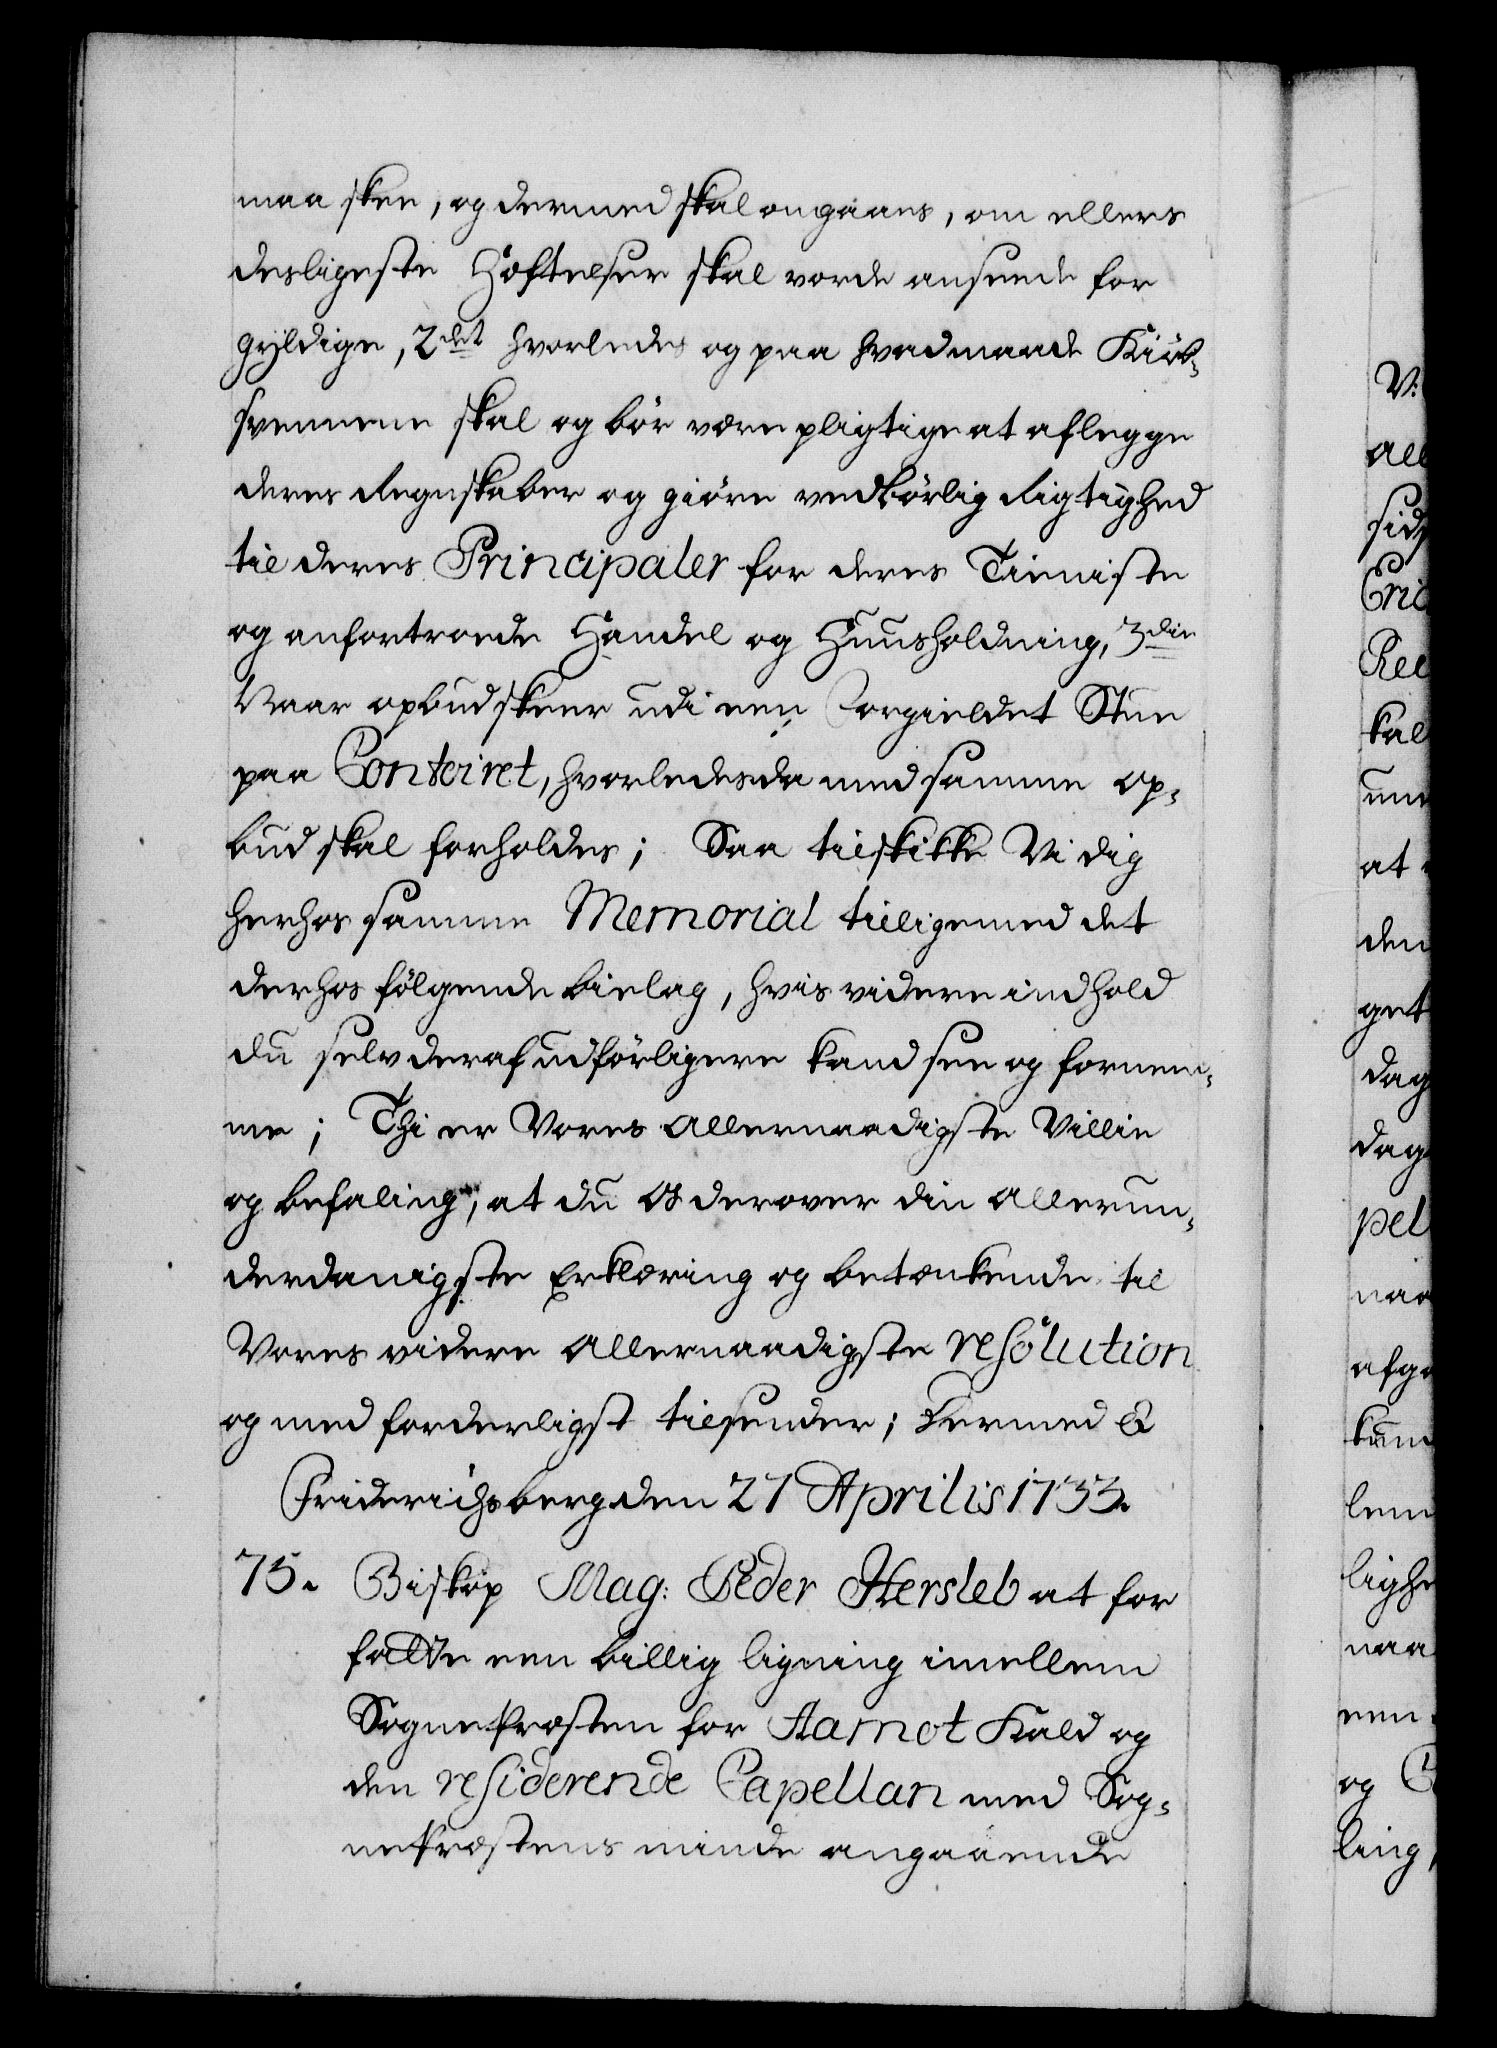 maa skee, og dermed skal omgaaes, om ellers
desligeste Hæftelser skal vorde ansende for
gyldige, 2det hvorledes og paa hvadmaade Kiöb-
svennene skal og bör være pligtige at aflegge
deres Regnskaber og giöre vedbörlig Rigtighed
til deres Principaler for deres Tieniste
og anfortroede Handel og Huusholdning, 3die
Naar opbud skeer udi een forgieldet Stue
paa Contoiret, hvorledes da med samme op-
bud skal forholdes; Saa tilskikke Vi dig
herhos samme Memorial tilligemed det
derhos fölgende bielag, hvis videre indhold
du selv deraf udförligere kand see og fornem-
me; Thi er Vores allernaadigste Villie
og befaling, at du os derover din allerun-
derdanigste Erklæring og betænkende til
Vores videre allernaadigste resolution
og med forderligst tilsender; Dermed &
Friderichsberg den 27 Aprilis 1733.
75. Biskop Mag: Peder Hersleb at for
fatte een billig ligning imellem
SognePræsten for Aamot Kald og
den residerende Capellan med Sog-
nePræstens minde angaaende
V:
all
sid
Eric
Rel
kal
at
den
get
dag
dag
pel
naa
afg
lem
ligh
naa
een
og C
ling,